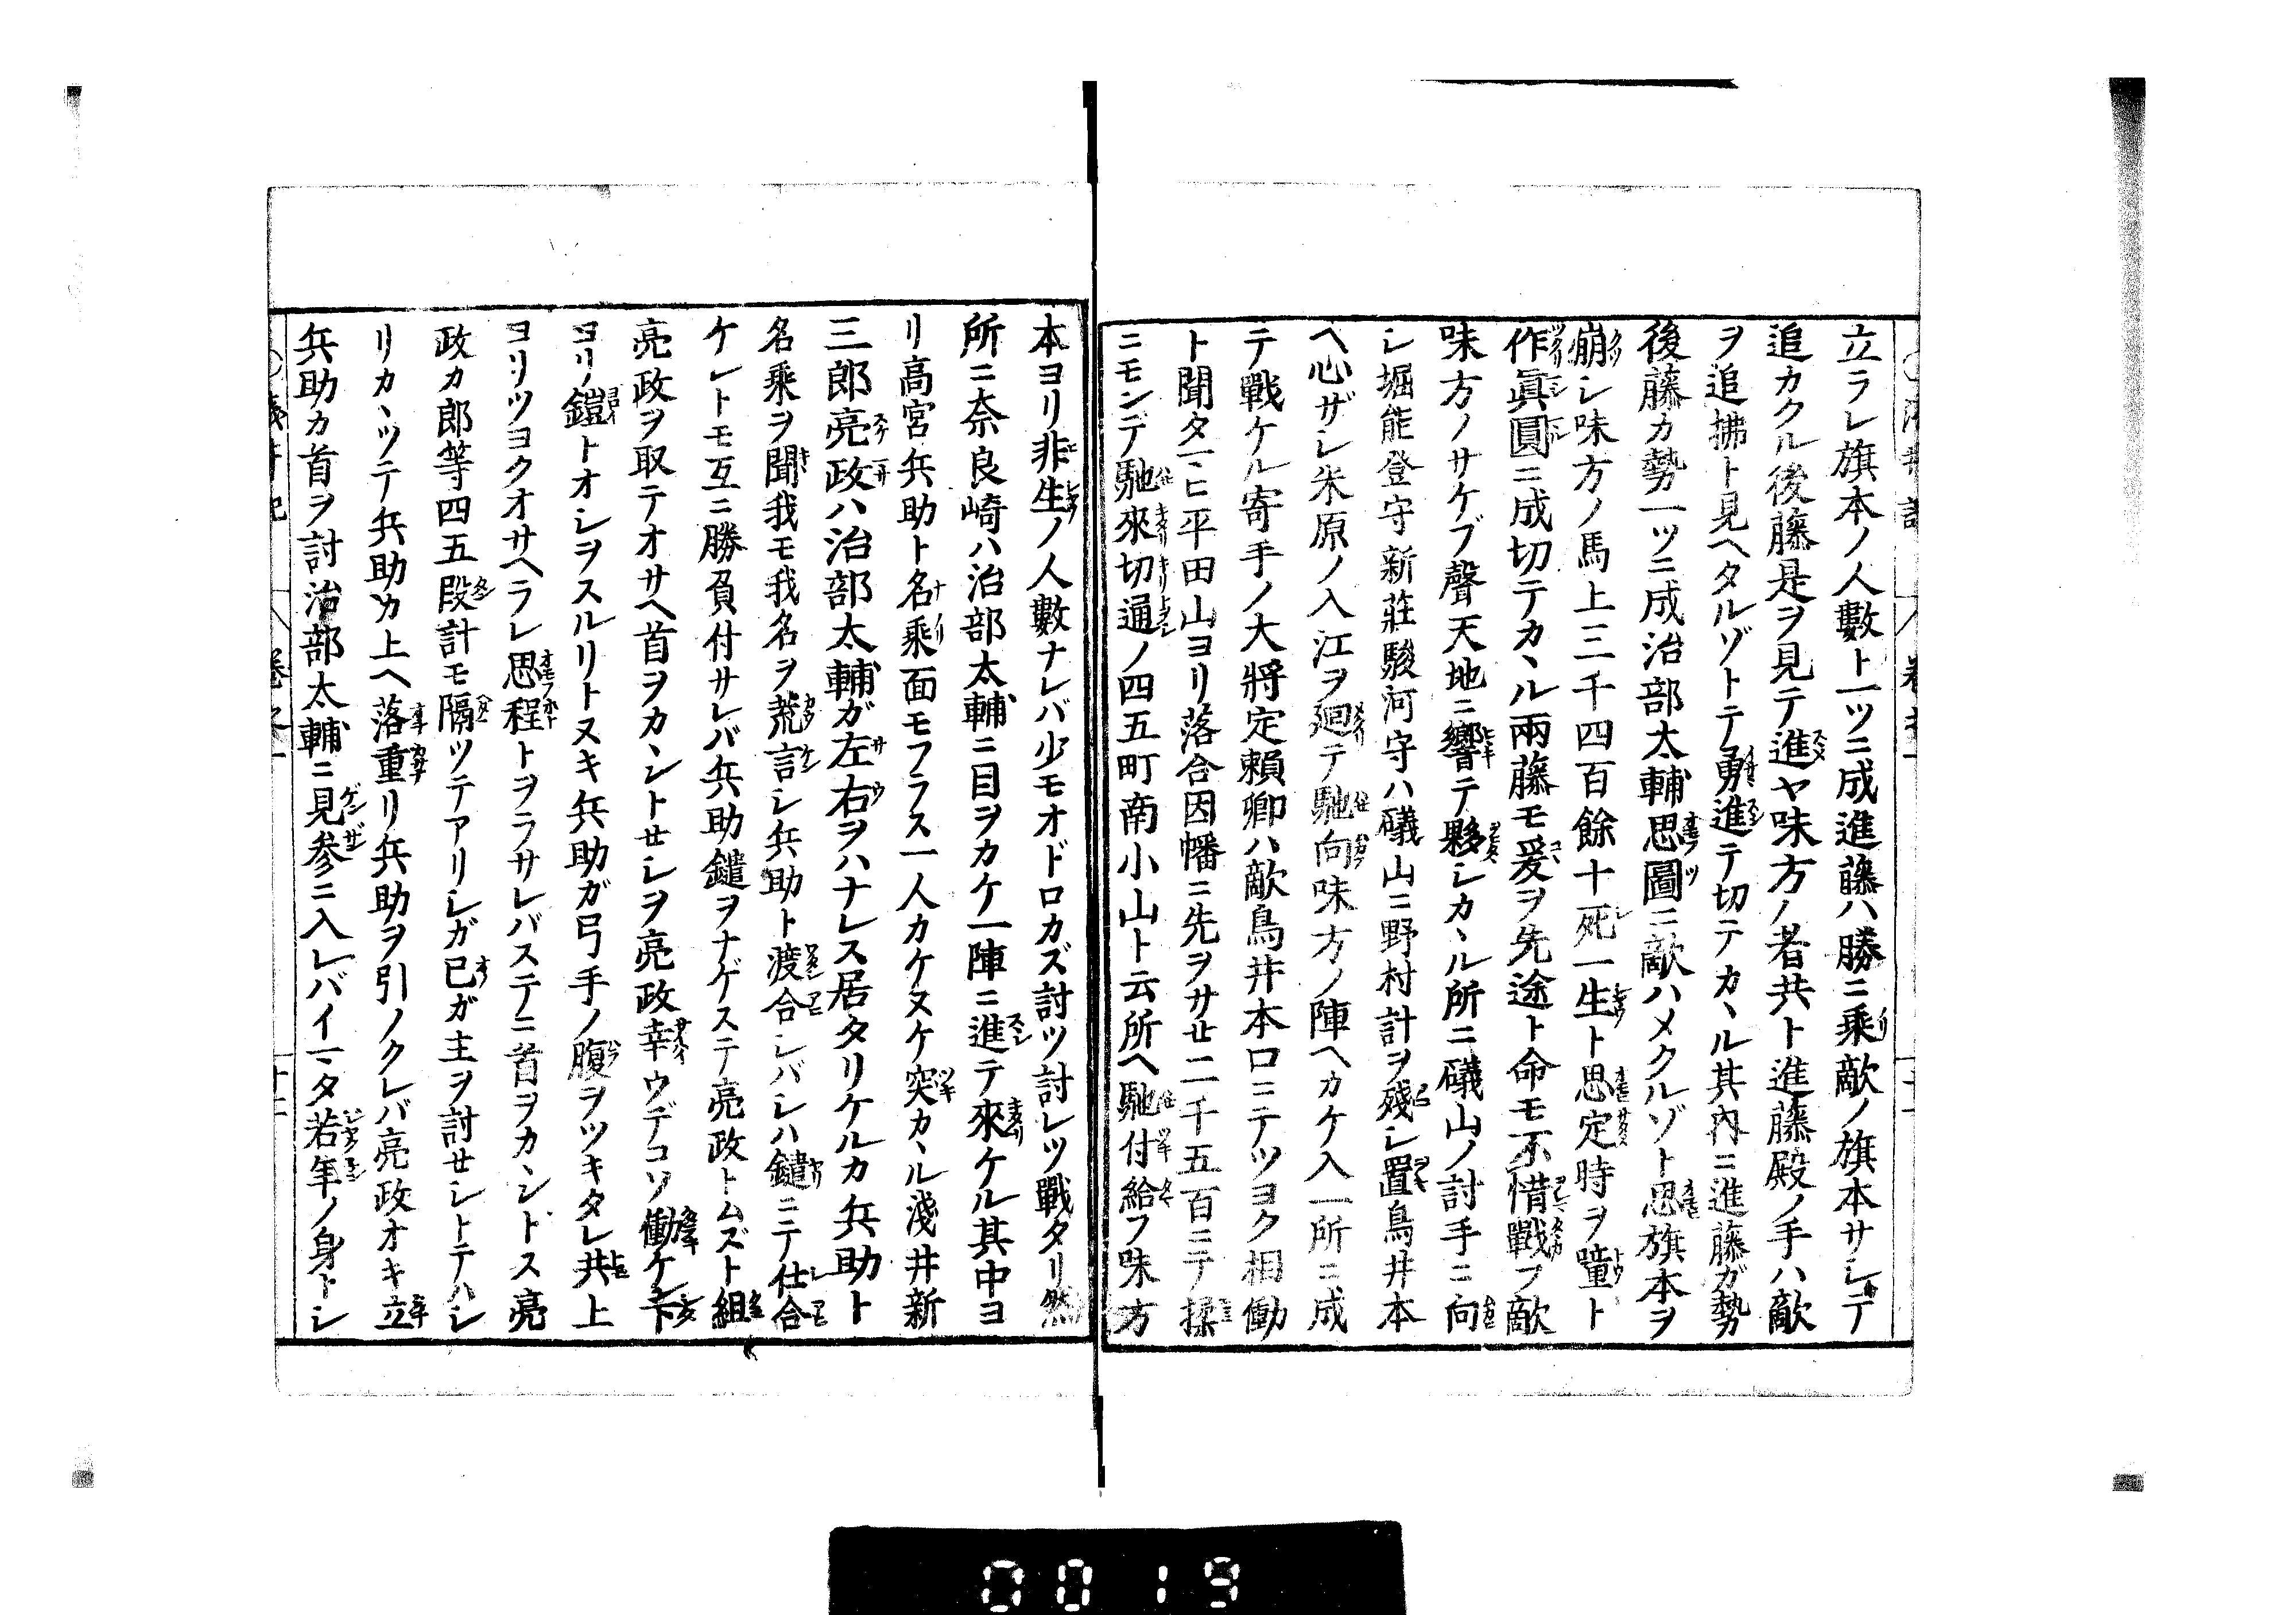 立ラレ旗本ノ人數ト一ツニ成進藤ハ勝ニ乘敵ノ旗本サシテ
追カクル後藤是ヲ見テ進ヤ味方ノ者共ト進藤殿ノ手ハ敵
ヲ追拂ト見ヘタルゾトテ勇進テ切テカヽル其内ニ進藤ガ勢
後藤カ勢一ツニ成治部太輔思圖ニ敵ハメクルゾト思旗本ヲ
崩シ味方ノ馬上三千四百餘十死一生ト思定時ヲ瞳ト
作眞圓ニ成切テカヽル兩藤モ爰ヲ先途ト命モ不惜戰フ敵
味方ノサケブ聲天地ニ響テ夥シカヽル所ニ礒山ノ討手ニ向
シ堀能登守新莊駿河守ハ礒山ニ野村計ヲ殘シ置鳥井本
ヘ心ザシ米原ノ入江ヲ廻テ馳向味方ノ陣ヘカケ入一所ニ成
テ戰ケル寄手ノ大將定頼卿ハ敵鳥井本口ニテツヨク相働
ト聞タマヒ平田山ヨリ落合因幡ニ先ヲサセ二千五百ニテ揉
ニモンデ馳來切通ノ四五町南小山ト云所ヘ馳付給フ味方
本ヨリ非生ノ人數ナレバ少モオドロカズ討ツ討レツ戰タリ然
所ニ奈良崎ハ治部太輔ニ目ヲカケ一陣ニ進テ來ケル其中ヨ
リ高宮兵助ト名乘面モフラス一人カケヌケ突カヽル淺井新
三郎亮政ハ治部太輔ガ左右ヲハナレス居タリケルカ兵助ト
名乘ヲ聞我モ我名ヲ荒言シ兵助ト渡合シバシハ鑓ニテ仕合
ケレトモ互ニ勝負付サレバ兵助鑓ヲナゲステ亮政トムズト組
亮政ヲ取テオサヘ首ヲカヽントセシヲ亮政幸ウデコソ働ケレ下
ヨリノ鎧トオシヲスルリトヌキ兵助ガ弓手ノ腹ヲツキタレ共上
ヨリツヨクオサヘラレ思程トヲラサレバステニ首ヲカヽントス亮
政カ郎等四五段計モ隔ツテアリシガ已ガ主ヲ討セシトテハシ
リカヽツテ兵助カ上ヘ落重リ兵助ヲ引ノクレバ亮政オキ立
兵助カ首ヲ討治部太輔ニ見参ニ入レバイマタ若年ノ身トシ
0019